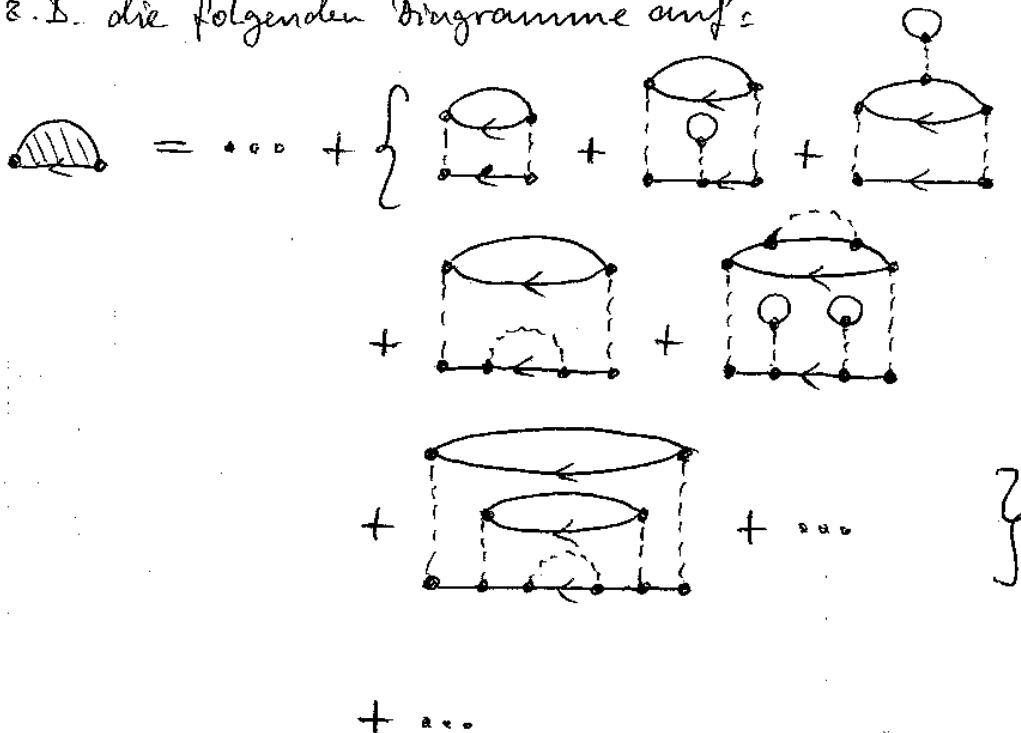 z.B. die folgenden Diagramme auf:
= ... + {
+
+
+
+
+
+ ... }
+ ...